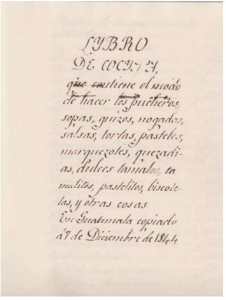 LYBRO
DE COCINA,
que contiene el modo
de hacer los pucheros,
sopas, guizos, nogados,
salsas, tortas, pasteles,
marquezotes, quezadi-
as, dulces tamales, ta
malitos, pastelitos, biscote-
las, y otras cosas
En Guatemala copiado
á 7 de Diciembre de 1844